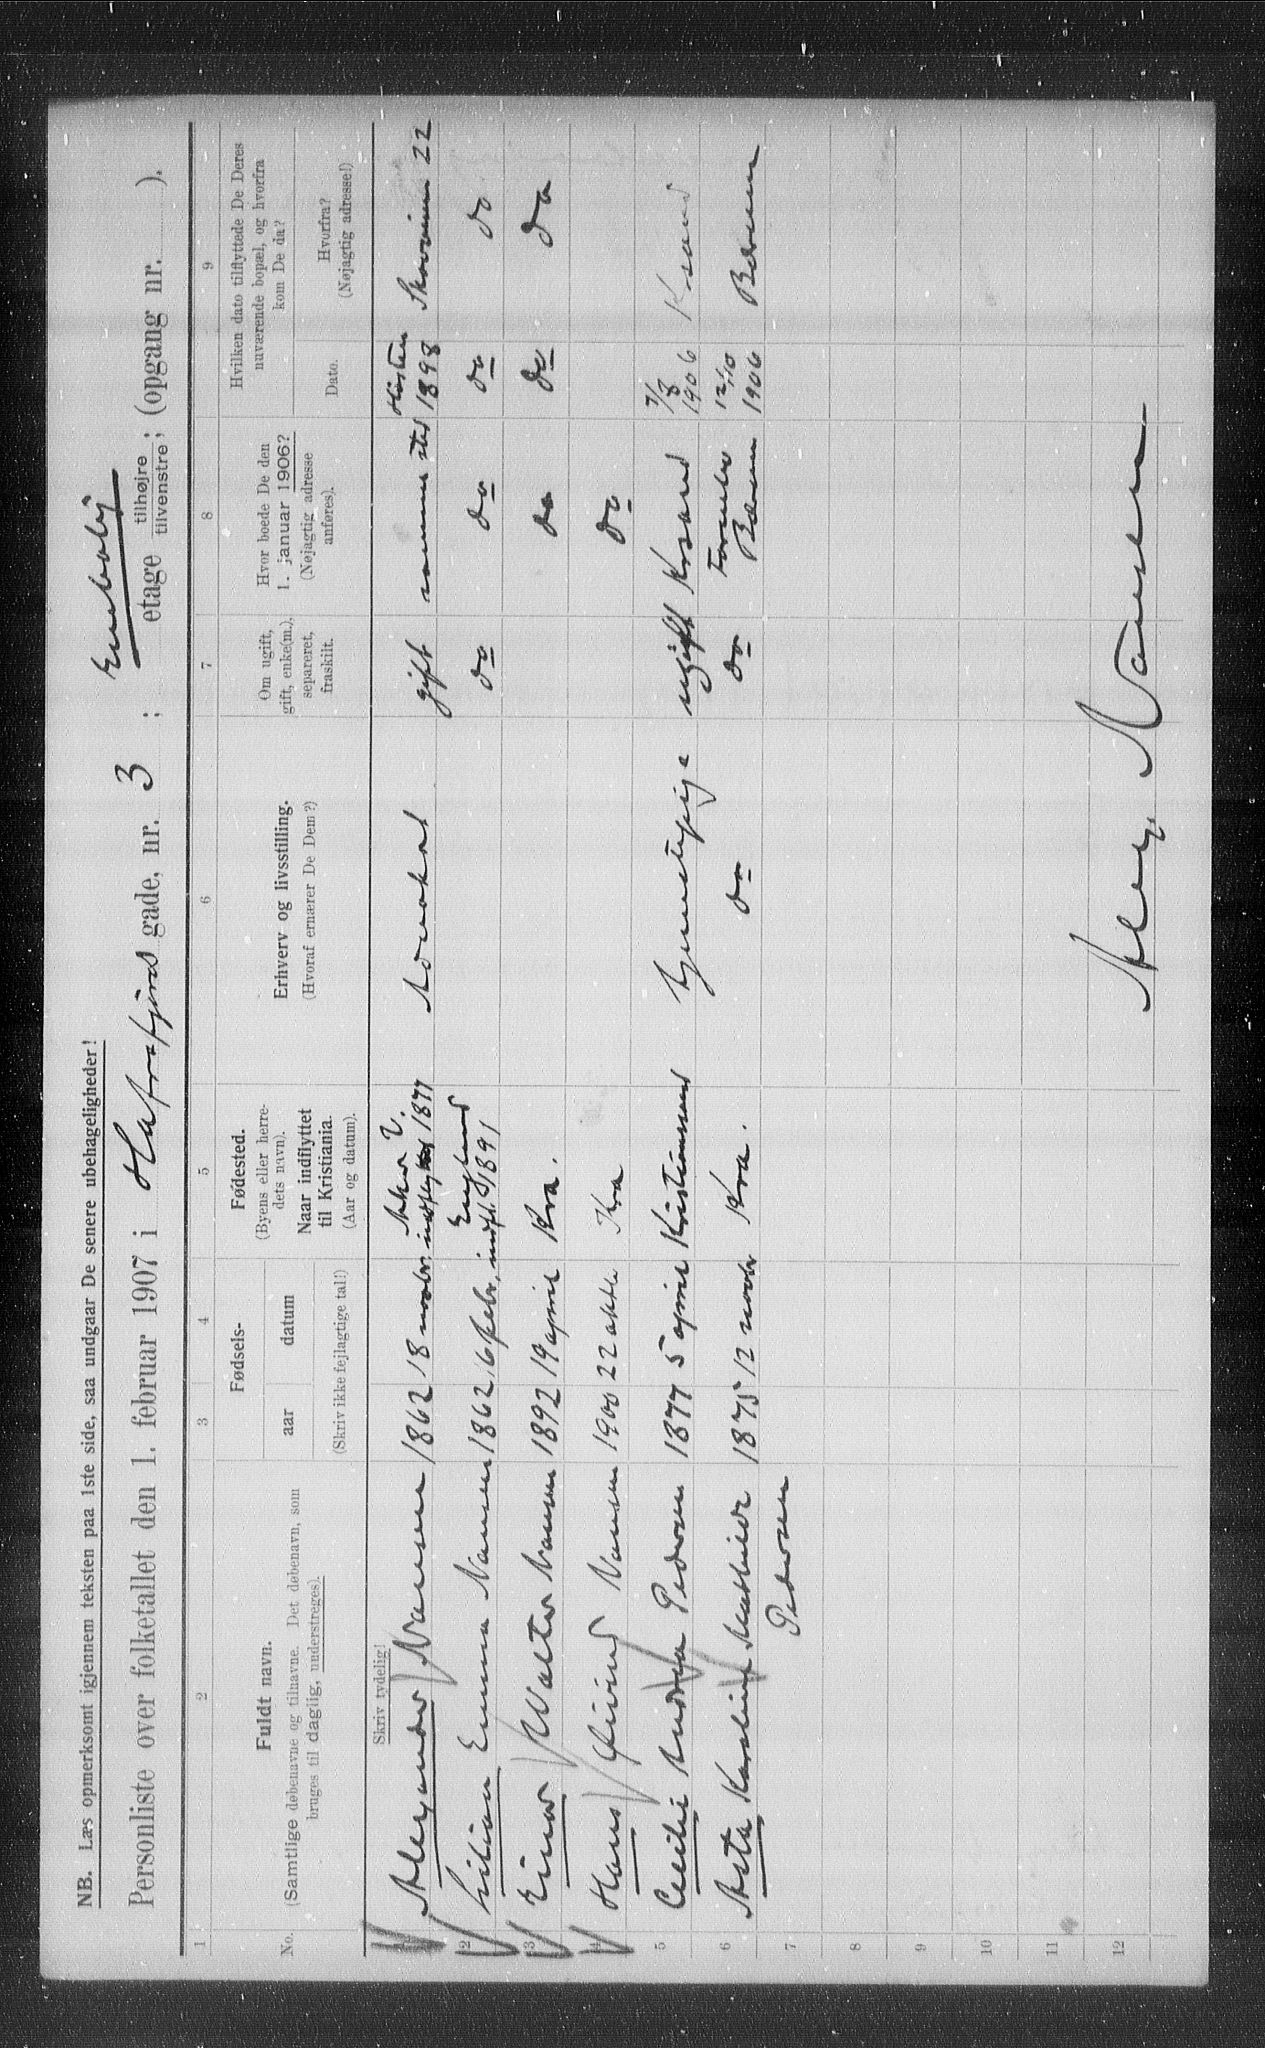 NB. Læs opmerksomt igjennem teksten paa 1ste side, saa undgaar De senere ubehageligheder!
Personliste over folketallet den 1. februar 1907 i Hafrsfjords gade, nr. 3 ; Enebolig etage tilhøjre / tilvenstre; (opgang nr. ).
1 2 3 4 5 6 7 8 9
No.
Fuldt navn.
(Samtlige døbenavne og tilnavne. Det døbenavn, som
bruges til daglig, understreges).
Fødsels-
aar datum
(Skriv ikke fejlagtige tal!)
Fødested.
(Byens eller herre-
dets navn).
Naar indflyttet
til Kristiania.
(Aar og datum).
Erhverv og livsstilling.
(Hvoraf ernærer De Dem?)
Om ugift,
gift, enke(m.),
separeret,
fraskilt.
Hvor boede De den
1. januar 1906?
(Nøjagtig adresse
anføres).
Hvilken dato tilflyttede De Deres
nuværende bopæl, og hvorfra
kom De da?
Dato.
Hvorfra?
(Nøjagtig adresse!)
Skriv tydelig!
1 Alexander Nansen 1862 18 novbr. Aker V. indflyttet 1877 Advokat gift samme sted Høsten 1898 22
2 Lilian Emma Nansen 1862 6 febr. England indfl. 1891 do do do do
3 Einar Walter Nansen 1892 19 april Kra. do do do
4 Hans Øivind Nansen 1900 22 oktbr Kra do
5 Cecilie Andrea Pedersen 1877 5 april Kristianssand tjenestepige ugift Krsand 7/8 1906 Krsand
6 Asta Karoline Mathilde Pedersen 1875 12 novbr Kra. do do Fornebo Bærum 12/10 1906 Bærum
7
8
9
10
11
12
Alex. Nansen